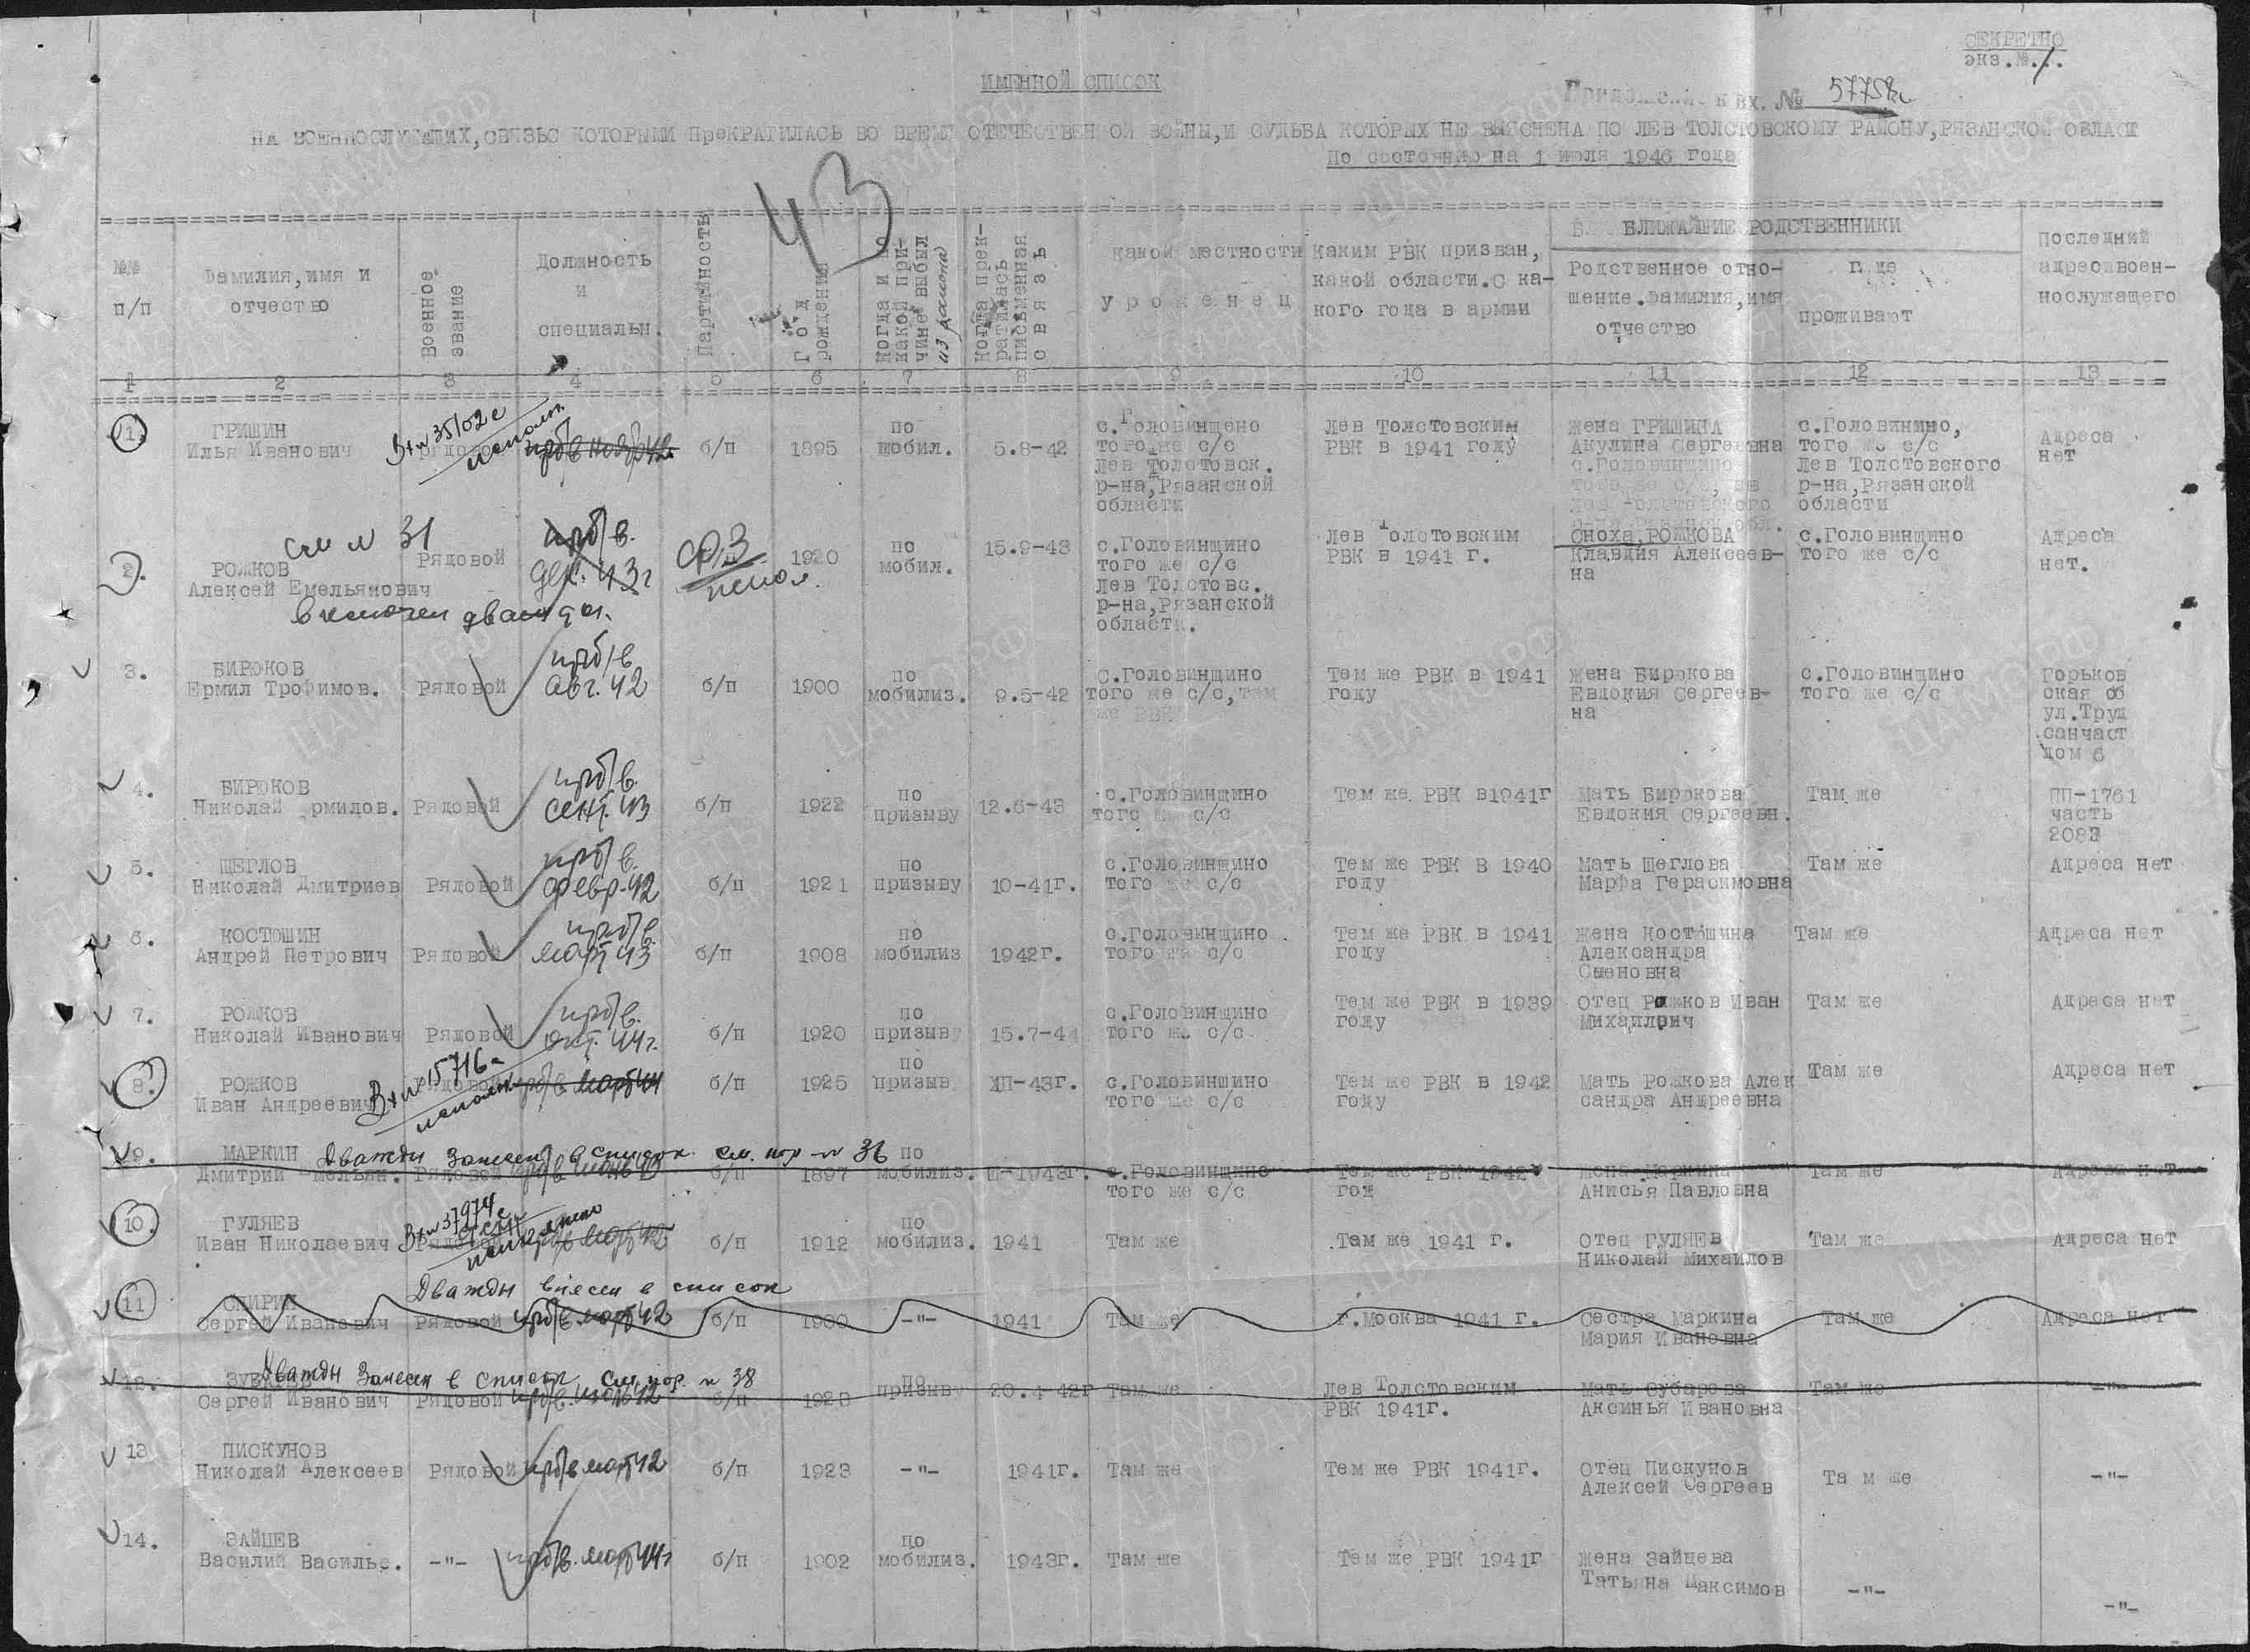 СЕКРЕТНО
экз.№ 1.
ИМЕННОЙ СПИСОК
Приложение к вх. № 57758с
НА ВОЕННОСЛУЖАЩИХ, СВЯЗЬ С КОТОРЫМИ ПРЕКРАТИЛАСЬ ВО ВРЕМЯ ОТЕЧЕСТВЕННОЙ ВОЙНЫ, И СУДЬБА КОТОРЫХ НЕ ВЫЯСНЕНА ПО ЛЕВ ТОЛСТОВСКОМУ РАЙОНУ, РЯЗАНСКОЙ ОБЛАСТИ
По состоянию на 1 июля 1946 года
43
№№ п/п
Фамилия, имя и отчество
Военное звание
Должность и специальн.
Партийность
Год рождения
Когда и по какой причине выбыл из района
Когда прекратилась письменная связь
какой местности уроженец
Каким РВК призван, какой области. С какого года в армии
БЛИЖАЙШИЕ РОДСТВЕННИКИ
Родственное отношение. Фамилия, имя отчество
где проживают
Последний адрес военнослужащего
1 2 3 4 5 6 7 8 9 10 11 12 13
1. ГРИШИН Илья Иванович рядовой Вх № 35102с исполн. проп/в нояб 42 б/п 1895 по мобил. 5.8-42 с.Головинщено того же с/с Лев Толстовск. р-на, Рязанской области Лев Толстовским РВК в 1941 году жена ГРИШИНА Акулина Сергеевна с.Головинщино с.Головинино, того же с/с Лев Толстовского р-на, Рязанской области Адреса нет
см № 31
2. РОЖКОВ Алексей Емельянович Рядовой проп/в. дек. 43г 1920 по мобил. 15.9-43 с.Головинщино того же с/с Лев Толстовс. р-на, Рязанской области. Лев Толстовским РВК в 1941 г. Сноха, РОЖКОВА Клавдия Алексеевна с.Головинщино того же с/с Адреса нет.
включен дважды.
3. БИРЮКОВ Ермил Трофимов. Рядовой проп/в авг. 42 б/п 1900 по мобилиз. 9.5-42 с.Головинщино того же с/с, том же РВК Тем же РВК в 1941 году Жена Бирюкова Евдокия Сергеевна с.Головинщино того же с/с Горьковская об ул.Труд санчаст дом 6
4. БИРЮКОВ Николай Ермилов. Рядовой проп/в. сент. 43 б/п 1922 по призыву 12.6-43 с.Головинщино того же с/с Тем же РВК в1941г Мать Бирюкова Евдокия Сергеевн. Там же ПП-1761 часть 2083
5. ЩЕГЛОВ Николай Дмитриев Рядовой проп/в. февр-42 б/п 1921 по призыву 10-41г. с.Головинщино того же с/с Тем же РВК в 1940 году Мать Щеглова Марфа Герасимовна Там же Адреса нет
6. КОСТЮШИН Андрей Петрович Рядовой проп/в. март 43 б/п 1908 по мобилиз 1942г. с.Головинщино того же с/с Тем же РВК в 1941 году Жена Костюшина Александра Семеновна Там же Адреса нет
7. РОЖКОВ Николай Иванович Рядовой проп/в. окт. 44г. б/п 1920 по призыву 15.7-44 с.Головинщино того же с/с Тем же РВК в 1939 году Отец Рожков Иван Михайлович Там же Адреса нет
8. РОЖКОВ Иван Андреевич Вх № 15716с исполн. Рядовой проп/в март 44 б/п 1925 по призыв XII-43г. с.Головинщино того же с/с Тем же РВК в 1942 году Мать Рожкова Александра Андреевна Там же Адреса нет
Дважды занесен в список см. пор № 36
9. МАРКИН Дмитрий Емельян. Рядовой б/п 1897 по мобилиз. с.Головинщино того же с/с Тем же РВК 1942 год жена Маркина Анисья Павловна Там же Адреса нет
10. ГУЛЯЕВ Иван Николаевич Вх № 37974с Рядовой проп/в март 42 б/п 1912 по мобилиз. 1941 Там же Там же 1941 г. Отец ГУЛЯЕВ Николай Михайлов Там же Адреса нет
Дважды внесен в список
11 СПИРИН Сергей Иванович Рядовой проп/в март 42 б/п 1900 -"- 1941 Там же г.Москва 1941 г. Сестра Маркина Мария Ивановна Там же Адреса нет
Дважды занесен в список см. пор. № 38
12. Сергей Иванович Рядовой б/п по призыву Там же Лев Толстовским РВК 1941г. Мать Зубарева Аксинья Ивановна Там же -"-
13 ПИСКУНОВ Николай Алексеев Рядовой проп/в март 42 б/п 1923 -"- 1941г. Там же Тем же РВК 1941г. Отец Пискунов Алексей Сергеев Там же -"-
14. ЗАЙЦЕВ Василий Василье. -"- проп/в. март 44г б/п 1902 по мобилиз. 1943г. Там же Тем же РВК 1941г Жена Зайцева Татьяна Максимов -"- -"-